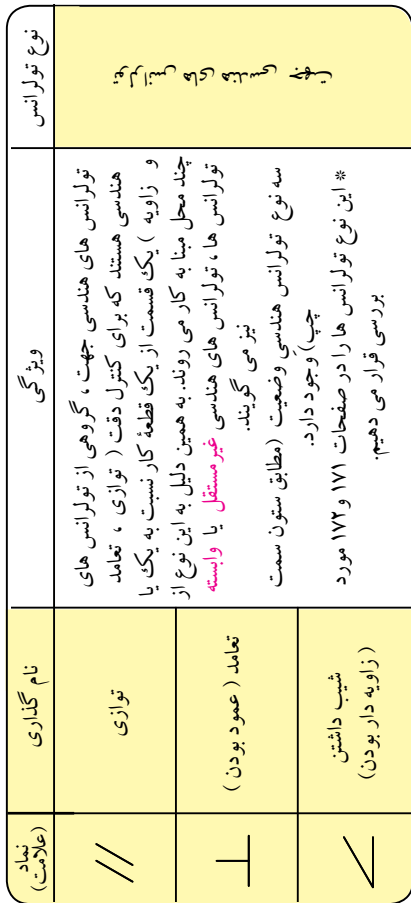 نوع تولرانس
ویژگی
نام گذاری
نماد
(علامت)
تولرانس های هندسی جهت
تولرانس های هندسی جهت ، گروهی از تولرانس های
هندسی هستند که برای کنترل دقت ( توازی ، تعامد
و زاویه ) یک قسمت از یک قطعهٔ کار نسبت به یک یا
چند محل مبنا به کار می روند. به همین دلیل به این نوع از
تولرانس ها ، تولرانس های هندسی غیر مستقل یا وابسته
نیز می گویند.
سه نوع تولرانس هندسی وضعیت (مطابق ستون سمت
چپ) وجود دارد.
* این نوع تولرانس ها را در صفحات ۱۷۱ و ۱۷۲ مورد
بررسی قرار می دهیم.
توازی
//
تعامد ( عمود بودن )
⊥
شیب داشتن
( زاویه دار بودن)
∠